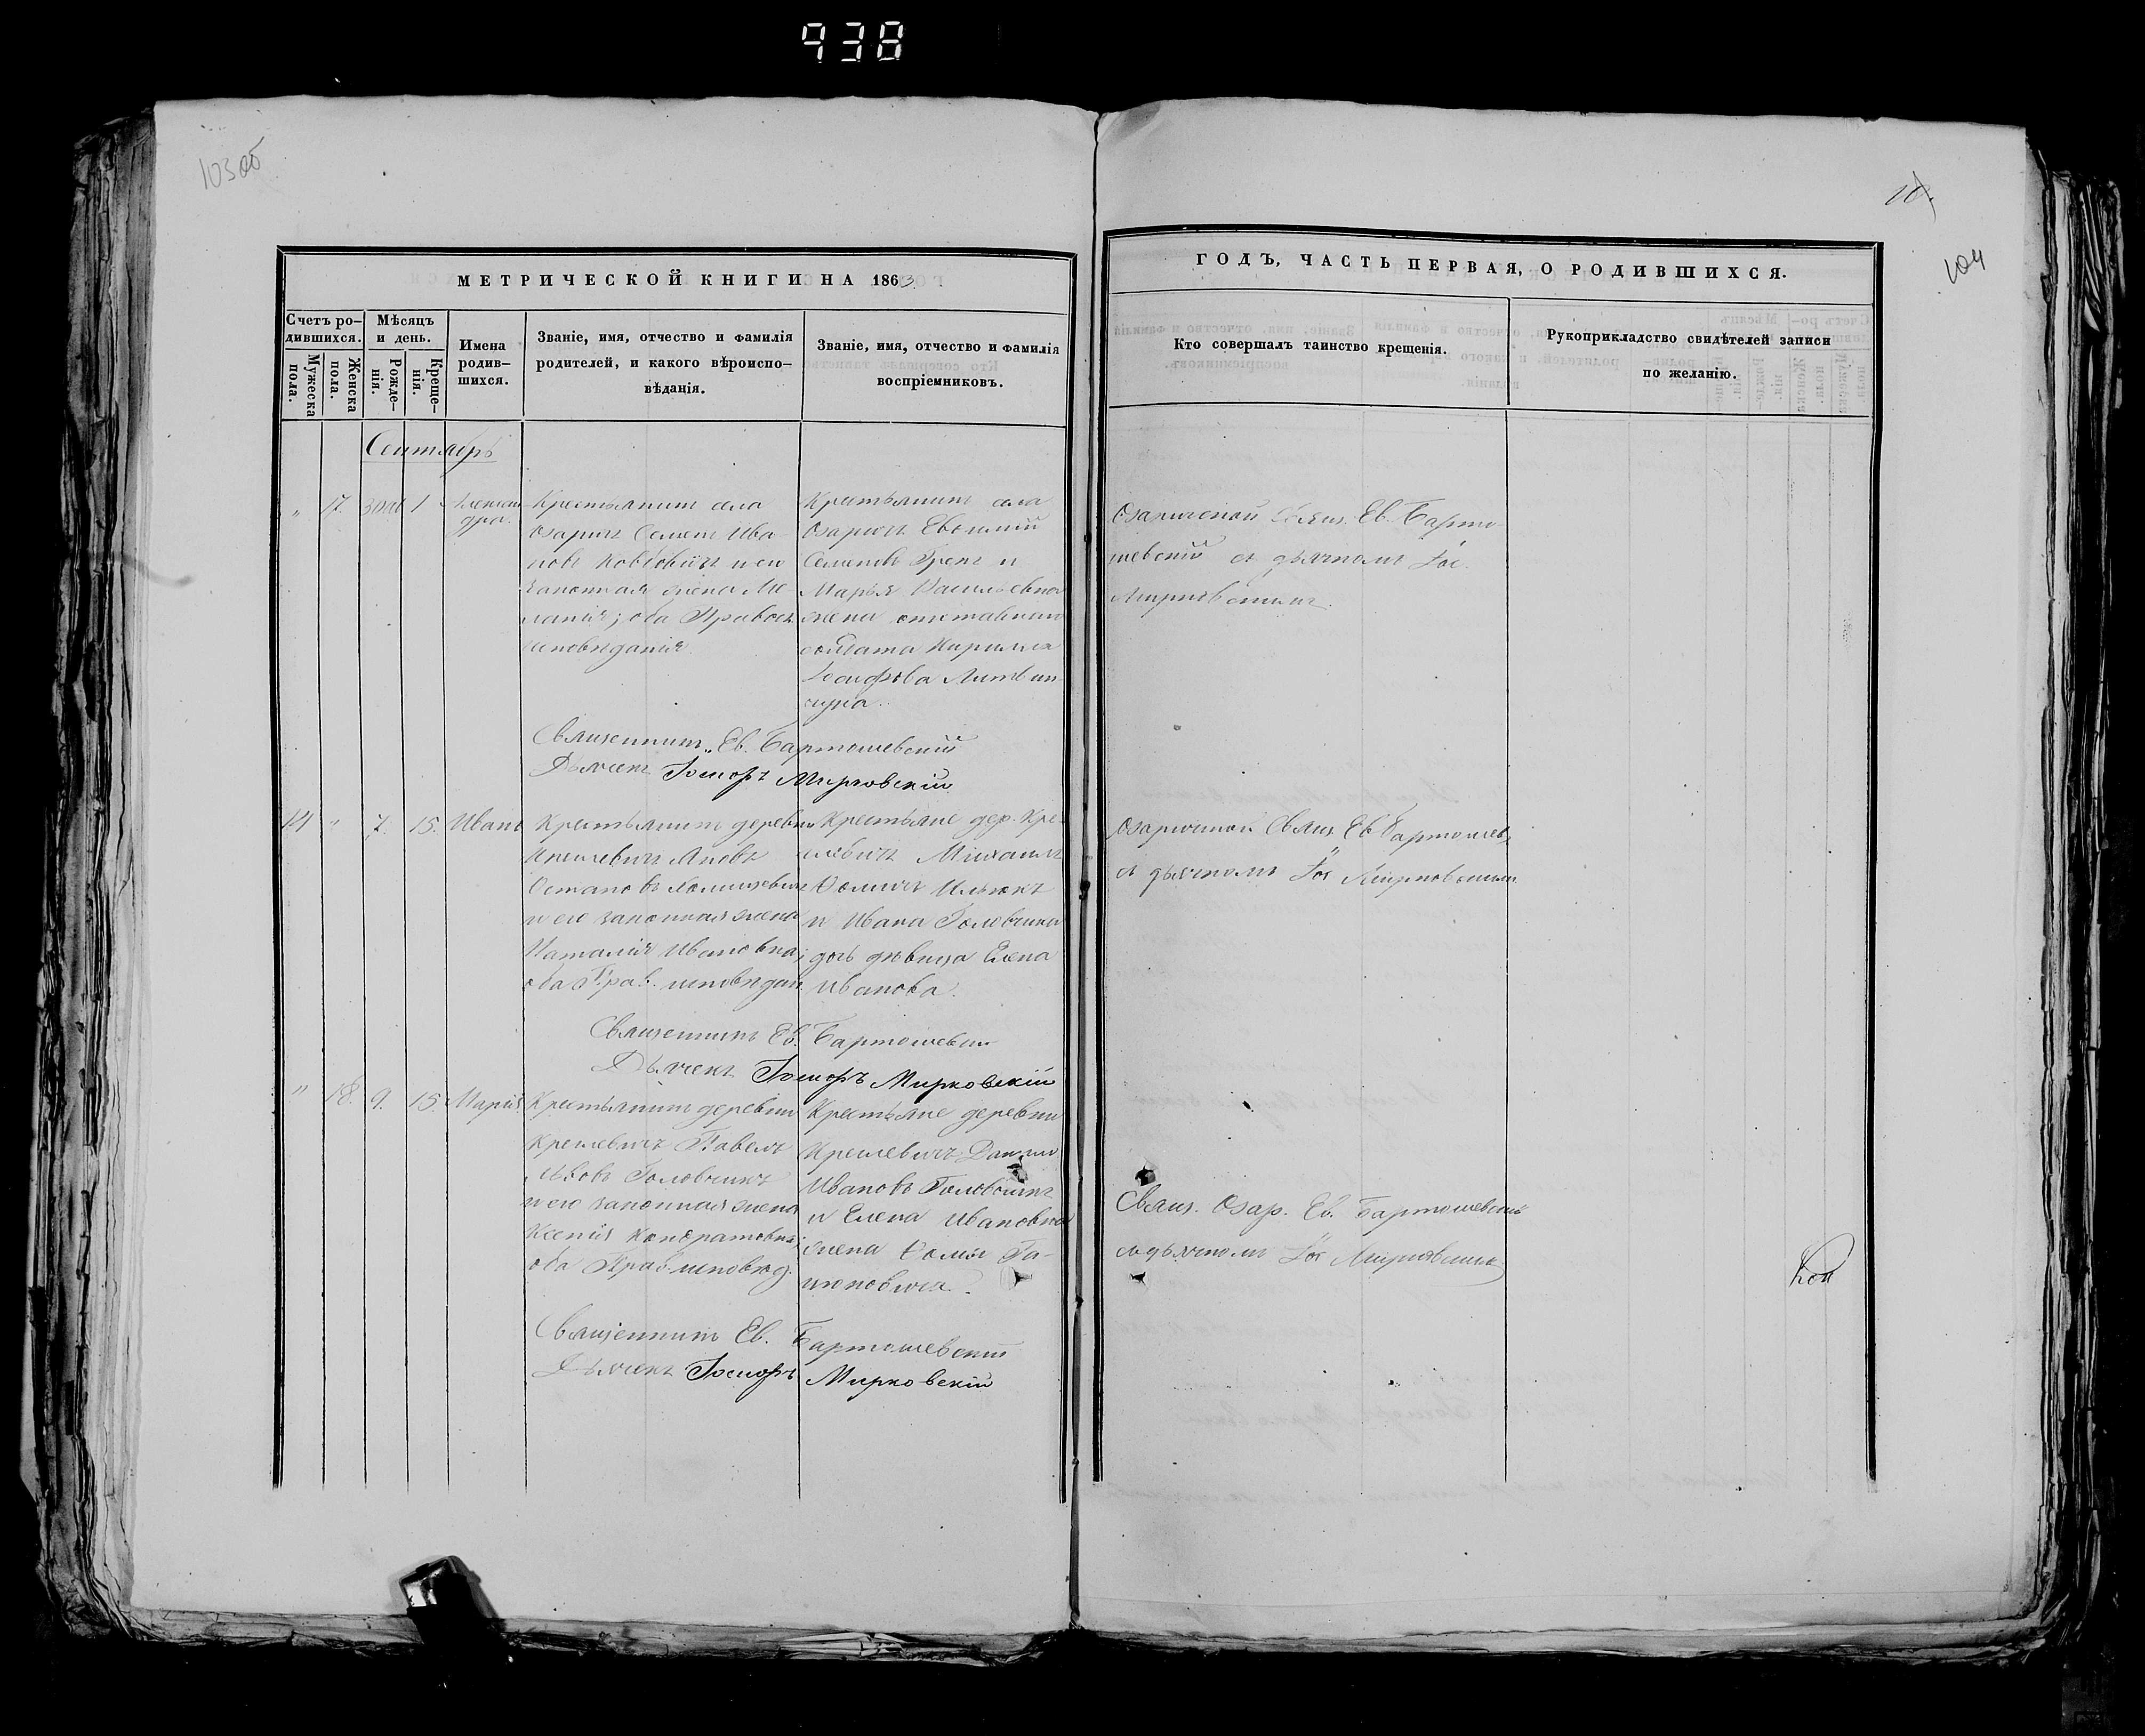 938
103об
104
МЕТРИЧЕСКОЙ КНИГИ НА 1863
ГОДЪ, ЧАСТЬ ПЕРВАЯ, О РОДИВШИХСЯ.
Счетъ ро-
дившихся.
Мужеска
пола.
Женска
пола.
Мѣсяцъ
и день.
Рожде-
нія.
Креще-
нія.
Имена
родив-
шихся.
Званіе, имя, отчество и фамилія
родителей, и какого вѣроиспо-
вѣданія.
Званіе, имя, отчество и фамилія
воспріемниковъ.
Кто совершалъ таинство крещенія.
Рукоприкладство свидѣтелей записи
по желанію.
Сентябрь
" 17. 1 Алексан
дра.
Крестьянинъ села
Озаричъ Семенъ Ива-
новъ и его
законная жена Ме-
ланія; оба Правосл.
исповѣданія.
Крестьянинъ села
Озаричъ Евѳимій
Семеновъ и
Марья Васильевна
жена отставнаго
солдата Кирилла
Іосифова Литвин-
чука.
Озаричской Свящ. Ев. Барто-
шевскій съ дьячкомъ Іос.
Мирковскимъ.
Священникъ Ев. Бартошевскій
Дьячекъ Іосифъ Мирковскій
14 " 7. 15. Иванъ
Крестьянинъ деревни
Крешевичъ Яковъ
Остаповъ
и его законная жена
Наталія Ивановна;
оба Прав. исповѣдан.
Крестьяне дер. Кре-
шевичъ Михаилъ
Ѳоминъ
и Ивана Головчика
дочь дѣвица Елена
Иванова.
Озаричской Свящ. Ев Бартошев.
съ дьячкомъ Іос Мирковскимъ
Священникъ Ев. Бартошевскій
Дьячекъ Іосифъ Мирковскій
" 18. 9. 15. Марія
Крестьянинъ деревни
Крешевичъ Павелъ
Головчикъ
и его законная жена
Ксенія Кондратовна;
оба Прав исповѣд.
Крестьяне деревни
Крешевичъ
Ивановъ Головчикъ
и Елена Ивановна
жена Ѳомы
Свящ. Озар. Ев. Бартошевскій
съ дьячкомъ Іос Мирковскимъ
Священникъ Ев. Бартошевскій
Дьячекъ Іосифъ Мирковскій